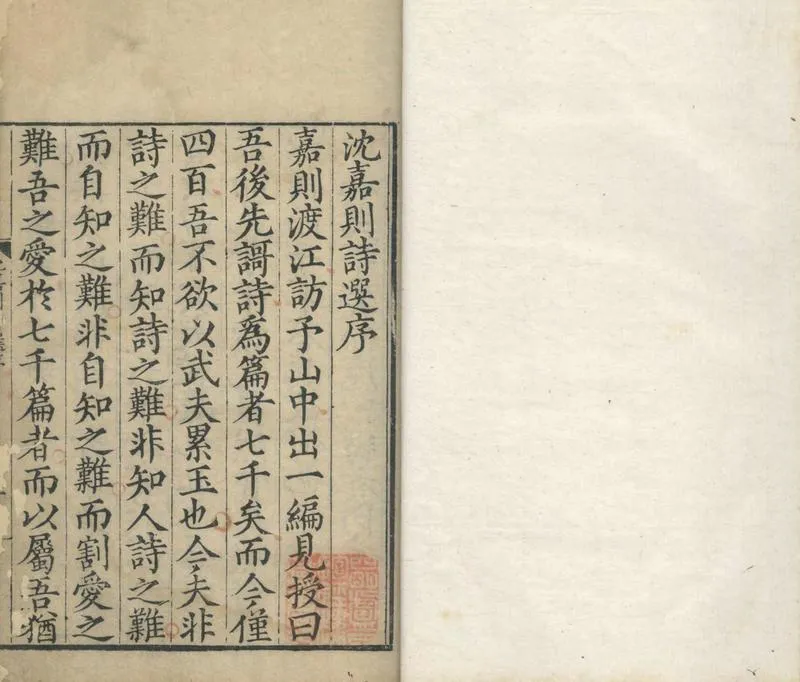 沈嘉則詩選序
嘉則渡江訪予山中出一編見授曰
吾後先謌詩爲篇者七千矣而今僅
四百吾不欲以武夫累玉也今夫非
詩之難而知詩之難非知人詩之難
而自知之難非自知之難而割愛之
難吾之愛於七千篇者而以屬吾猶